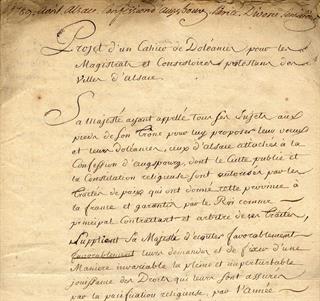 Alsace Confession d'Augsbourg
Projet d'un Cahier de Doléance pour les
Magistrats et Consistoires protestans des
Villes d'Alsace.
Sa majesté ayant appellé tous ses Sujets aux
pieds de son trône pour luy proposer leurs voeux
et leurs doléances, ceux d'alsace attachés à la
Confession d'Augsbourg, dont le Culte public et
la Constitution religieuse sont autorisés par les
traités de paix qui ont donné cette province à
la france et garantis par le Roi comme
principal Contractant et arbitre de ces traités,
Supplient Sa Majesté d'écouter favorablement
favorablement leurs demandes et de fixer d'une
Maniere invariable la pleine et imperturbable
jouissance des Droits qui leurs sont assurés
par la pacification religieuse, par l'Année